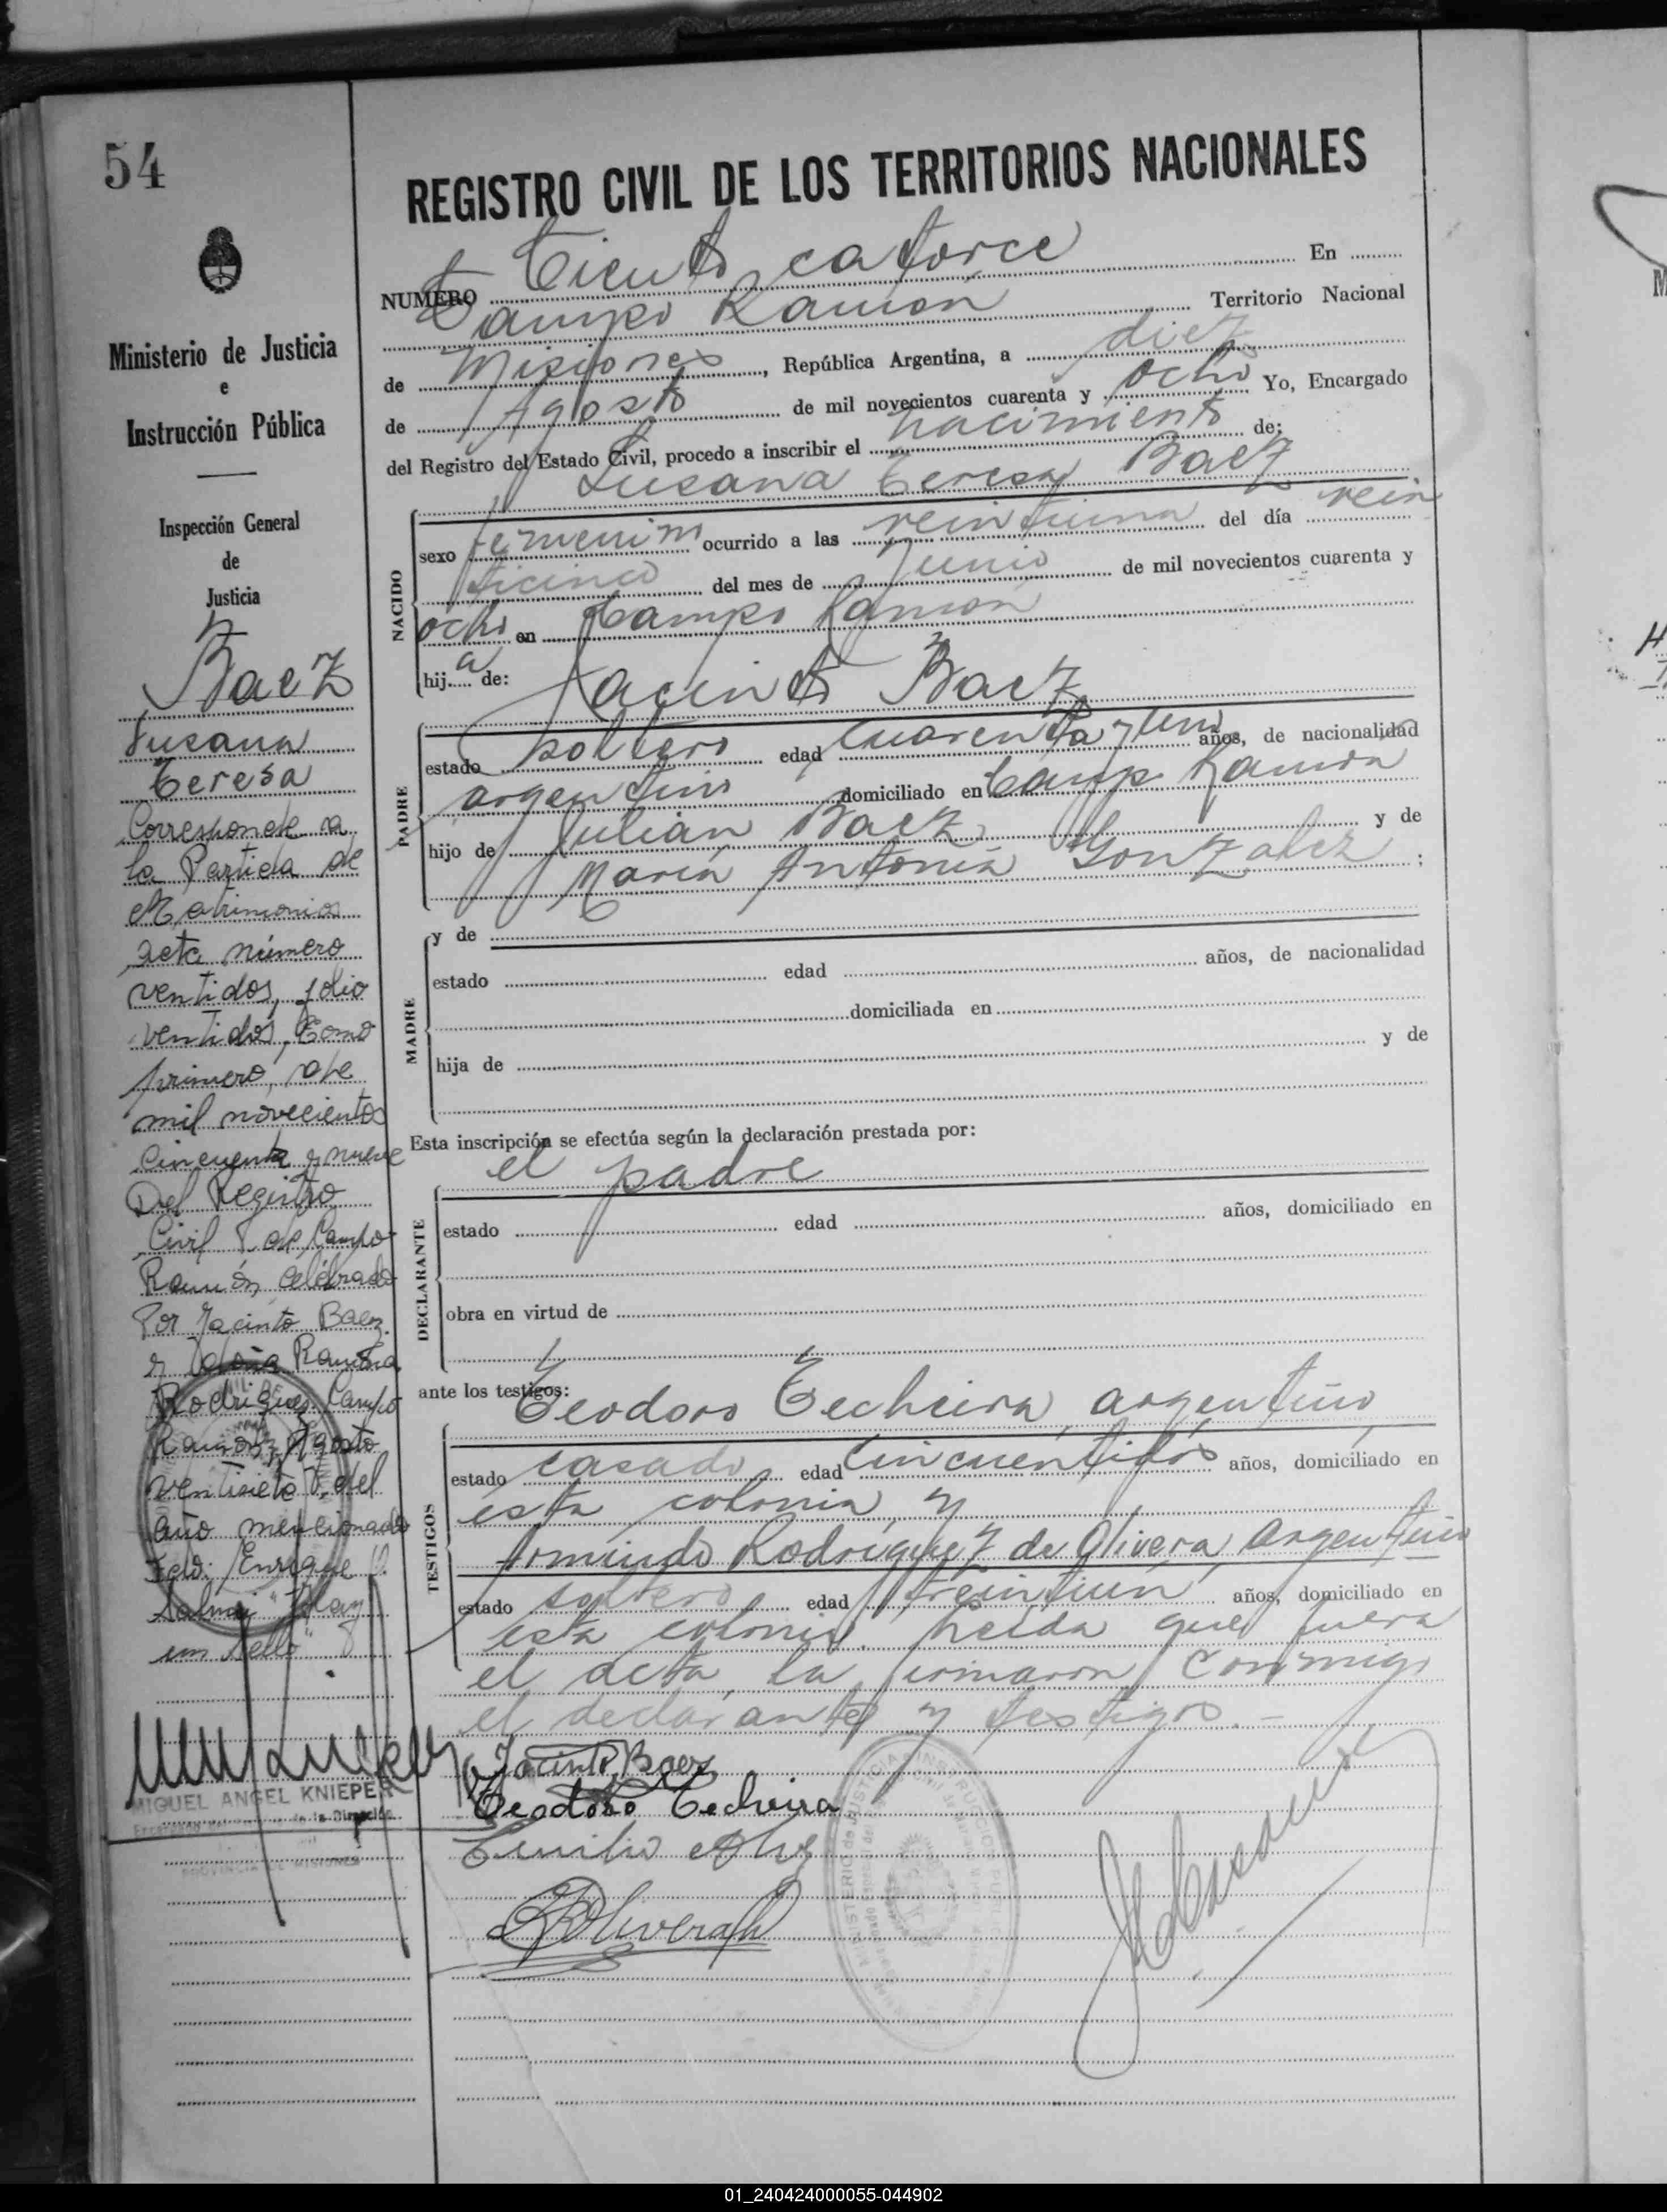 54
Ministerio de Justicia
e
Instrucción Pública
Inspección General
de
Justicia
Baez
Susana
Teresa
Corresponde a
la Partida de
Matrimonio
acta número
ventidos, folio
ventidos, Tomo
primero, de
mil novecientos
cincuenta y nueve
Del Registro
Civil de Campo
Ramón, celebrado
Por Jacinto Baez
y Ramona
Rodriguez, Campo
Ramón, Agosto
ventisiete del
año mencionado
Fdo: Enrique
Hay
un sello
MIGUEL ANGEL KNIEPER
PROVINCIA DE MISIONES
REGISTRO CIVIL DE LOS TERRITORIOS NACIONALES
NUMERO Ciento catorce En
Campo Ramón Territorio Nacional
de Misiones, República Argentina, a diez
de Agosto de mil novecientos cuarenta y ocho Yo, Encargado
del Registro del Estado Civil, procedo a inscribir el nacimiento de:
Susana Teresa Baez
NACIDO
sexo femenino ocurrido a las veintiuna del día vein
ticinco del mes de Junio de mil novecientos cuarenta y
ocho en Campo Ramón
hija de: Jacinto Baez
PADRE
estado soltero edad cuarenta y un años, de nacionalidad
argentino domiciliado en Campo Ramón
hijo de Julian Baez y de
María Antonia Gonzalez ;
y de
MADRE
estado edad años, de nacionalidad
domiciliada en
hija de y de
Esta inscripción se efectúa según la declaración prestada por:
el padre
DECLARANTE
estado edad años, domiciliado en
obra en virtud de
ante los testigos:
Teodoro Techeira, argentino,
TESTIGOS
estado casado edad cincuentidós años, domiciliado en
esta colonia, y
Armindo Rodriguez de Olivera, argentino
estado soltero edad treintiun años, domiciliado en
esta colonia. Leída que fuera
el acta, la firmaron conmigo
el declarante y testigos.-
Jacinto Baez
Teodoro Techeira
Emilio
01_240424000055-044902